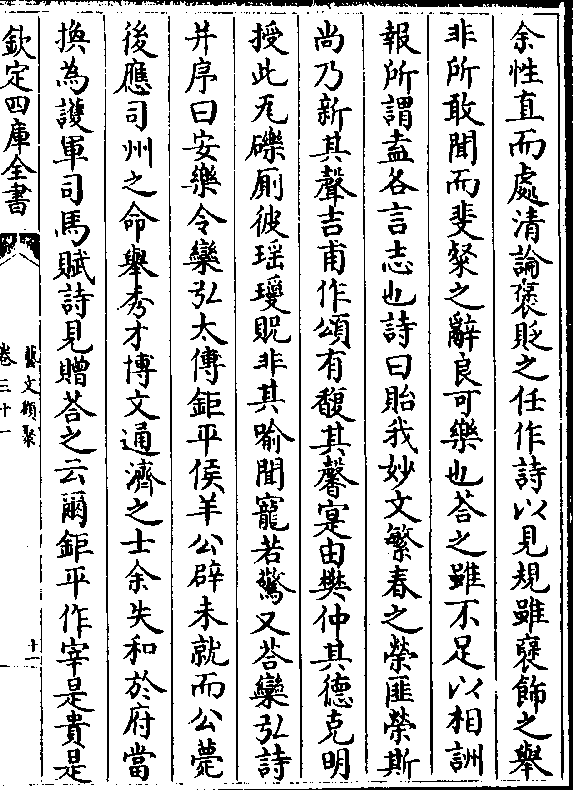 余性直而處清論褒貶之任作詩以見規雖褒飾之舉
非所敢聞而斐粲之辭良可樂也荅之雖不足以相詶
報所謂盍各言志也詩曰貽我妙文繁春之榮匪榮斯
尚乃新其聲吉甫作頌有馥其馨寔由樊仲其德克明
授此无礫厠彼瑶瓊貺非其喻聞寵若驚又荅欒弘詩
并序曰安樂令欒弘太傅鉅平侯羊公辟未就而公薨
後應司州之命舉秀才博文通濟之士余失和於府當
換為護軍司馬賦詩見贈荅之云爾鉅平作宰是貴是
欽定四庫全書
藝文類聚
卷三十一
十一